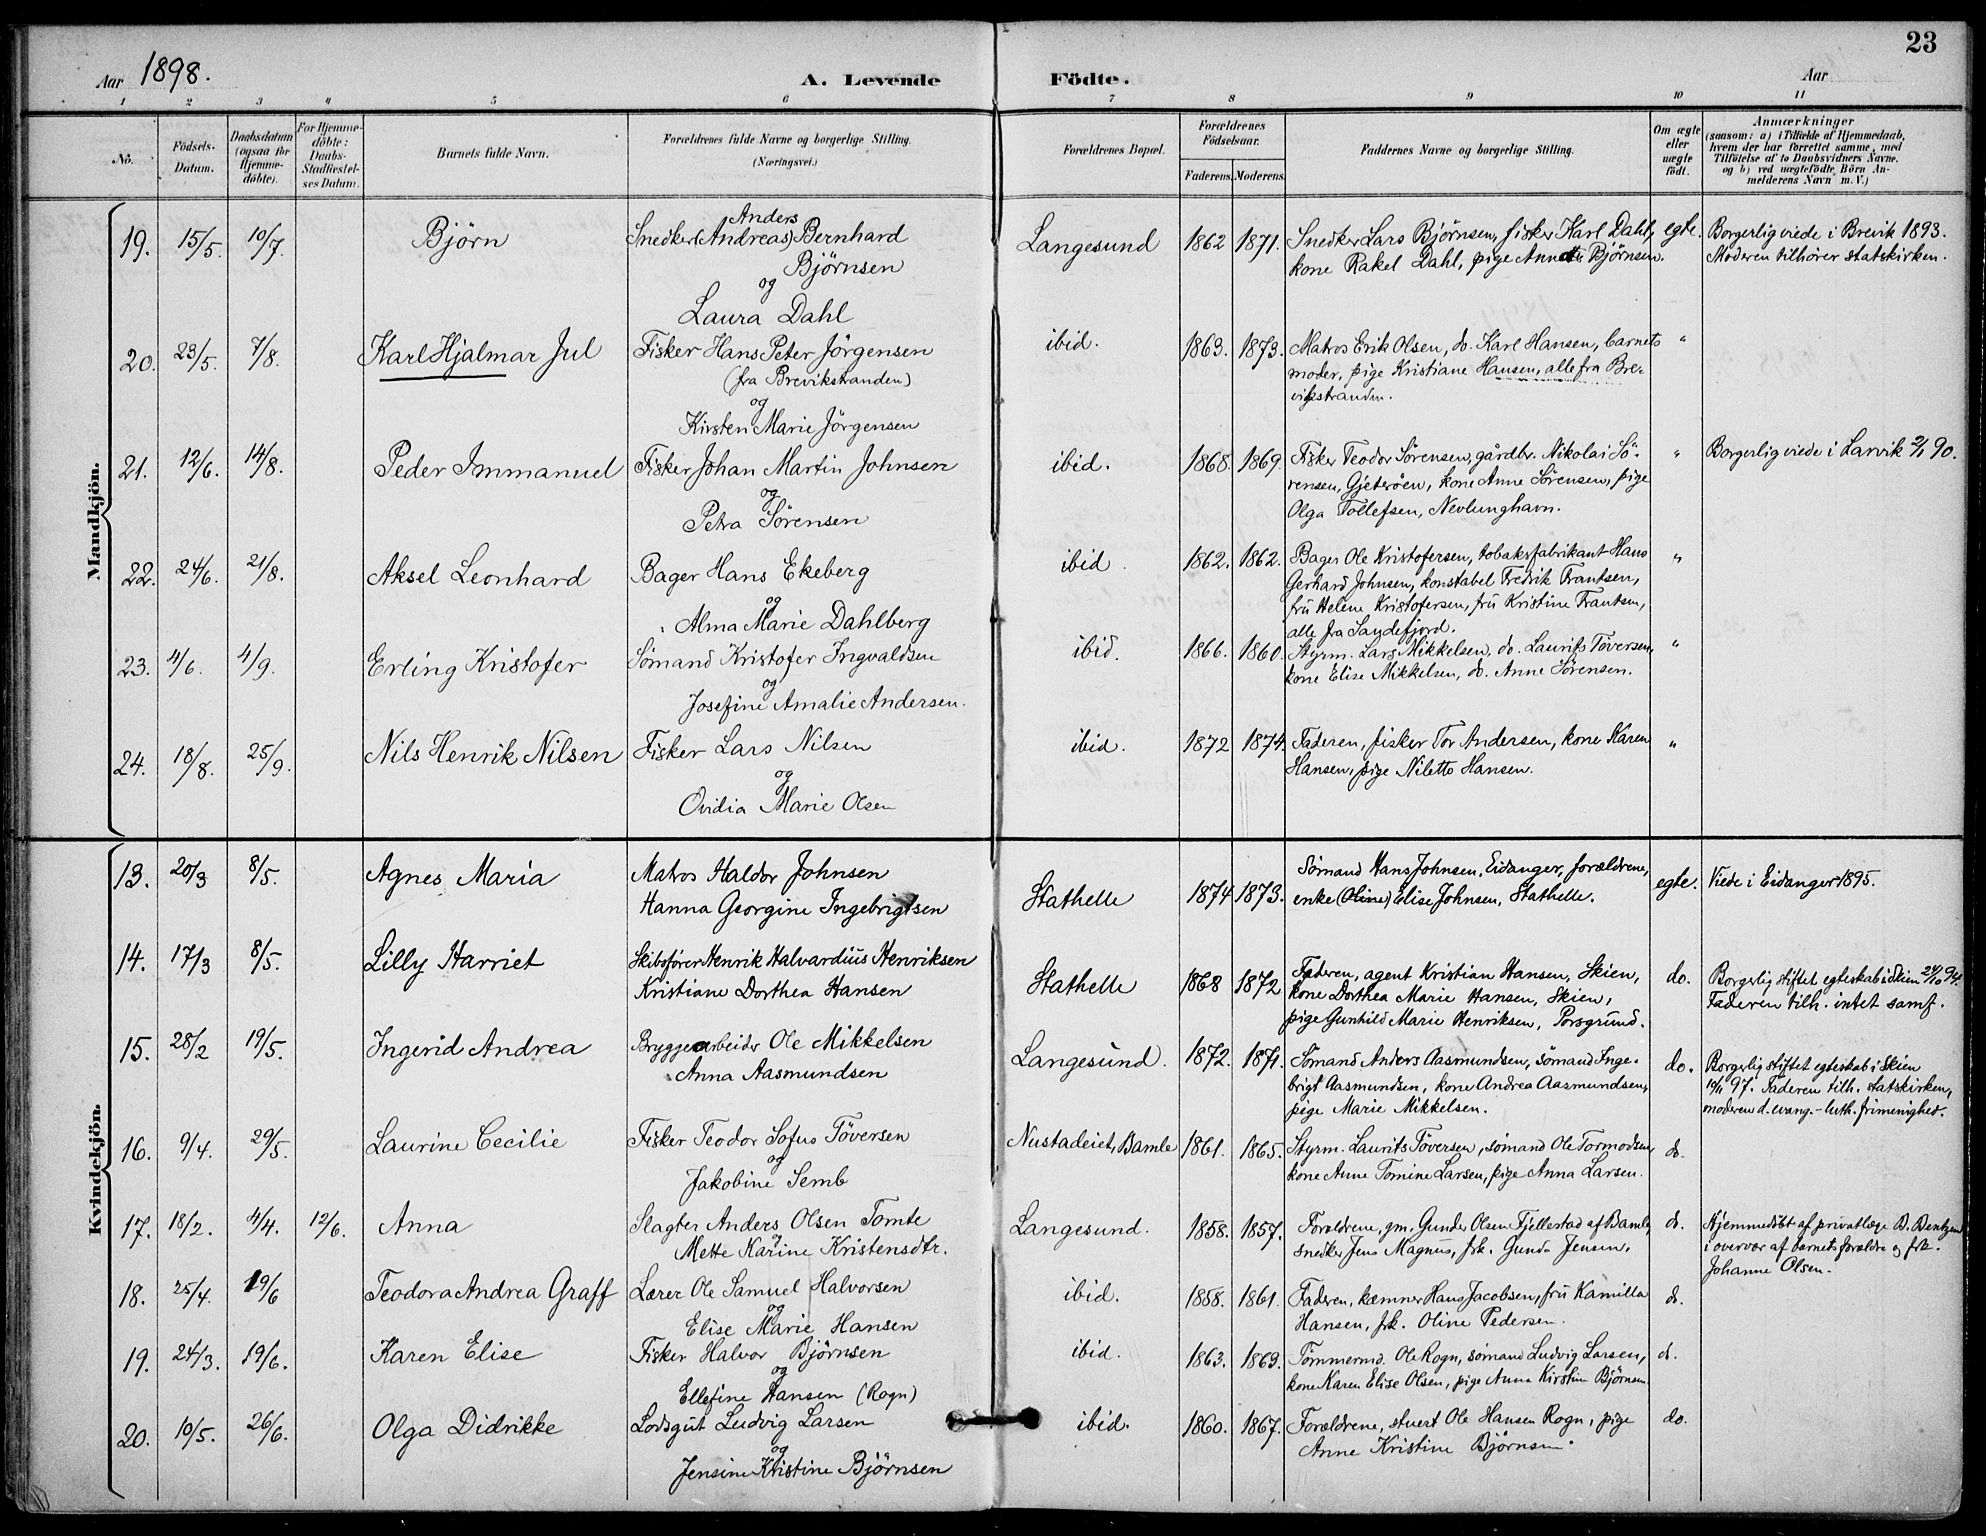 23
Aar 1898.
A. Levende Födte.
Aar
1 2 3 4 5 6 7 8 9 10 11
No.
Födsels-Datum.
Daabsdatum (ogsaa for Hjemme-döbte).
For Hjemme-döbte: Daabs-Stadfæstel-ses Datum.
Barnets fulde Navn.
Forældrenes fulde Navne og borgerlige Stilling. (Næringsvei.)
Forældrenes Bopæl.
Forældrenes Födselsaar.
Faderens. Moderens.
Faddernes Navne og borgerlige Stilling.
Om ægte eller uægte födt.
Anmærkninger
(saasom: a) i Tilfælde af Hjemmedaab,
hvem der har forrettet samme, med
Tilföielse af to Daabsvidners Navne.
og b) ved uægtefödte Börn An-
melderens Navn m. V.)
Mandkjön.
19. 15/5. 10/7. Björn
Anders
Snedker (Andreas) Bernhard
Björnsen
og
Laura Dahl
Langesund 1862 1871.
Snedker Lars Bjørnsen, fisker Karl Dahl,
kone Rakel Dahl, pige Annette Bjørnsen.
egte.
Borgerlig viede i Brevik 1893.
Moderen tilhører statskirken.
20. 23/5. 7/8. Karl Hjalmar Jul
Fisker Hans Peter Jörgensen
(fra Brevikstranden)
og
Kirsten Marie Jörgensen
ibid. 1863. 1873.
Matros Erik Olsen, do. Karl Hansen, barnets
moder, pige Kristiane Hansen, alle fra Bre-
vikstranden.
"
21. 12/6. 14/8. Peder Immanuel
Fisker Johan Martin Johnsen
og
Petra Sörensen
ibid. 1868. 1869.
Fisker Teodor Sørensen, gårdbr. Nikolai Sö-
rensen, Gjeterøen, kone Anne Sørensen, pige
Olga Tollefsen, Nevlunghavn.
"
Borgerlig viede i Larvik 2/1 90.
22. 24/6. 21/8. Aksel Leonhard
Bager Hans Ekeberg
og
Alma Marie Dahlberg
ibid. 1862. 1862.
Bager Ole Kristofersen, tobaksfabrikant Hans
Gerhard Johnsen, konstabel Fredrik Frantsen,
fru Helene Kristofersen, fru Kristine Frantsen,
alle fra Sandefjord.
"
23. 4/6. 4/9. Erling Kristofer
Sømand Kristofer Ingvaldsen
og
Josefine Amalie Andersen.
ibid. 1866. 1860.
Styrm. Lars Mikkelsen, do. Laurits Töversen,
kone Elise Mikkelsen, do. Anne Sørensen.
"
24. 18/8. 25/9. Nils Henrik Nilsen
Fisker Lars Nilsen
og
Ovidia Marie Olsen
ibid. 1872 1874.
Faderen, fisker Tor Andersen, kone Karen
Hansen, pige Nilette Hansen.
"
Kvindekjön.
13. 20/3 8/5. Agnes Maria
Matros Haldor Johnsen
Hanna Georgine Ingebrigtsen
Stathelle 1874 1873.
Sømand Hans Johnsen, Eidanger, forældrene,
enke (Oline) Elise Johnsen, Stathelle.
egte.
Viede i Eidanger 1895.
14. 17/3 8/5. Lilly Harriet
Skibsfører Henrik Halvardius Henriksen
Kristiane Dorthea Hansen
Stathelle 1868 1872
Faderen, agent Kristian Hansen, Skien,
kone Dorthea Marie Hansen, Skien,
pige Gunhild Marie Henriksen, Porsgrund.
do.
Borgerlig stiftet egteskab i Skien 24/10 94.
Faderen tilh. intet samf.
15. 28/2 19/5. Ingerid Andrea
Bryggearbeider Ole Mikkelsen
Anna Aasmundsen
Langesund. 1872. 1871.
Sømand Anders Aasmundsen, sømand Inge-
brigt Aasmundsen, kone Andrea Aasmundsen,
pige Marie Mikkelsen.
do.
Borgerlig stiftet egteskab i Skien
19/11 97. Faderen tilh. statskirken,
moderen d. evang.-luth. frimenighed.
16. 9/4. 29/5. Laurine Cecilie
Fisker Teodor Sofus Töversen
og
Jakobine Semb
Nustadeiet, Bamle 1861. 1865.
Styrm. Laurits Töversen, sømand Ole Tormodsen,
kone Anne Tomine Larsen, pige Anna Larsen.
do.
17. 18/2. 4/4. 12/6. Anna
Slagter Anders Olsen Tomte
og
Mette Karine Kristensdtr.
Langesund. 1858. 1857.
Forældrene, gm. Gunder Olsen Fjellestad af Bamle,
snedker Jens Magnus, frk. Gunda Jensen.
do.
Hjemmedöbt af privatlæge B. Bentzen
i overvær af barnets forældre og frk.
Johanne Olsen.
18. 25/4. 19/6 Teodora Andrea Graff
Lærer Ole Samuel Halvorsen
og
Elise Marie Hansen
ibid. 1858. 1861.
Faderen, kæmner Hans Jacobsen, fru Kamilla
Hansen, frk. Oline Pedersen.
do.
19. 24/3. 19/6. Karen Elise
Fisker Halvor Björnsen
og
Ellefine Hansen (Rogn)
ibid. 1863. 1869.
Tömmermd. Ole Rogn, sømand Ludvig Larsen,
kone Karen Elise Olsen, pige Anna Kirstine Bjørnsen
do.
20. 10/5. 26/6. Olga Didrikke
Lodsgut Ludvig Larsen
og
Jensine Kristine Björnsen
ibid. 1860. 1867.
Forældrene, stuert Ole Hansen Rogn, pige
Anne Kristine Bjørnsen.
do.